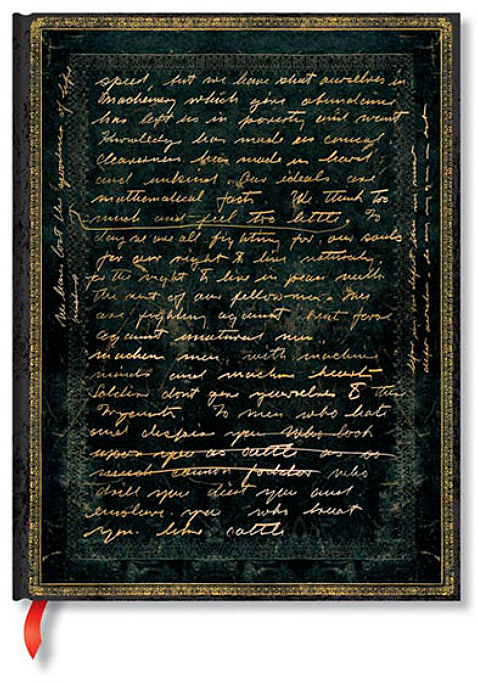 speed, but we have shut ourselves in
Machinery which gives abundance
has left us in poverty and want
Knowledge has made us
cleverness has made us hard,
and unkind. Our ideals are
mathematical facts. We think too
much and feel too little. To
day we are all fighting for our souls
for our right to live naturally,
for the right to live in peace with
the rest of our fellow men. They
are fighting against that force
against unnatural men
machine men, with machine
minds and machine hearts
Soldiers dont give yourselves to these
To men who hate
and despise you who look
upon you as cattle as
much cannon fodder who
drill you diet you and
enslave. you who treat
you like cattle
We have lost the goodness of life